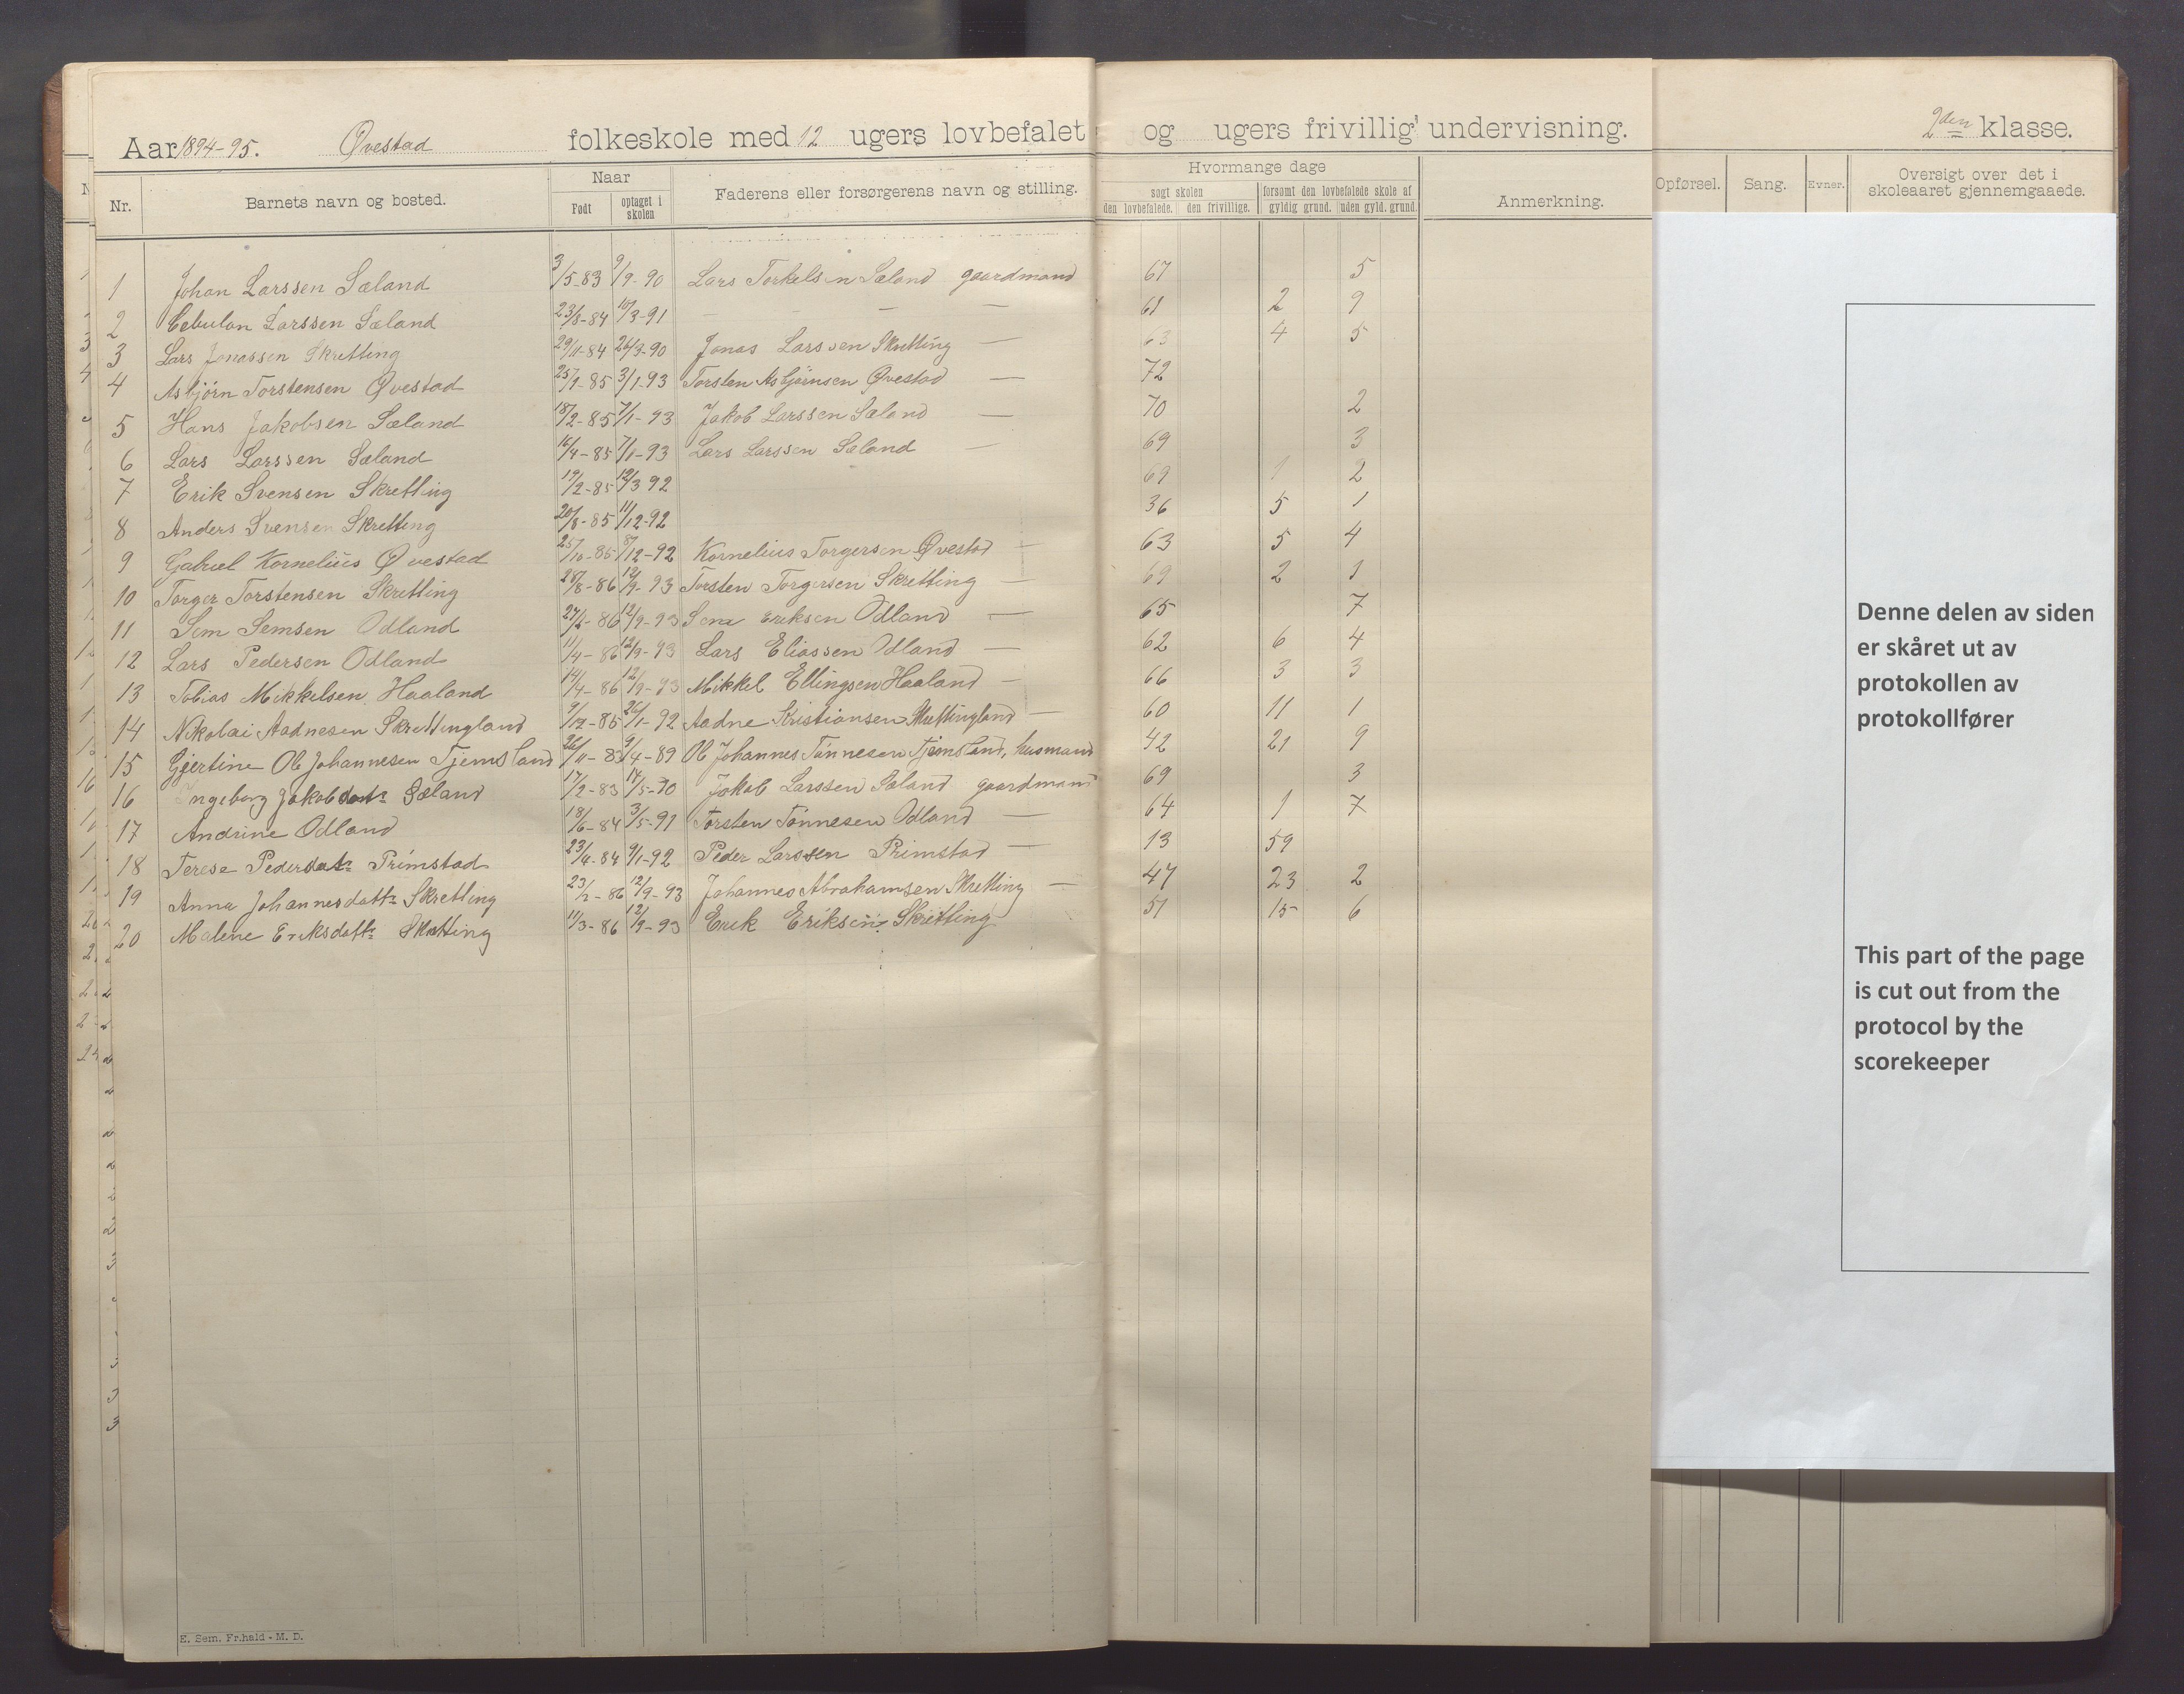 Aar 1894-95. Øvestad folkeskole med 12 ugers lovbefalet og ugers frivillig undervisning. 2den klasse.
Nr. Barnets navn og bosted. Naar Født optaget i skolen Faderens eller forsørgerens navn og stilling. Hvormange dage søgt skolen den lovbefalede. den frivillige. forsømt den lovbefalede skole af gyldig grund. uden gyld. grund. Anmerkning. Opførsel. Sang. Evner. Oversigt over det i skoleaaret gjennemgaaede.
1 Johan Larssen Sæland 3/5-83 9/9-90 Lars Torkelsen Sæland gaardmand 67 5
2 Cebulon Larssen Sæland 23/8-84 10/3-91 — — — 61 2 9
3 Lars Jonassen Skretting 29/11-84 26/3-90 Jonas Larssen Skretting — 63 4 5
4 Asbjørn Torstensen Øvestad 25/1-85 3/1-93 Torsten Asbjørnsen Øvestad — 72
5 Hans Jakobsen Sæland 18/2-85 7/1-93 Jakob Larssen Sæland — 70 2
6 Lars Larssen Sæland 16/4-85 7/1-93 Lars Larssen Sæland — 69 3
7 Erik Svensen Skretting 19/2-85 12/3 92 69 1 2
8 Anders Svensen Skretting 20/8-85 11/12-92 36 5 1
9 Gabriel Kornelius Øvestad 25/10-85 8/12-92 Kornelius Torgersen Øvestad — 63 5 4
10 Torger Torstensen Skretting 28/8-86 12/9-93 Torsten Torgersen Skretting — 69 2 1
11 Sem Semsen Odland -86 12/9-93 Sem Eriksen Odland — 65 7
12 Lars Pedersen Odland 11/4-86 12/9-93 Lars Eliassen Odland — 62 6 4
13 Tobias Mikkelsen Haaland 14/4-86 12/9-93 Mikkel Ellingsen Haaland — 66 3 3
14 Nikolai Aadnesen Skrettingland 9/12-85 26/1-92 Aadne Kristiansen Skrettingland — 60 11 1
15 Gjertine Ol. Johannesen Tjemsland 26/11-83 9/4-89 Ol Johannes Tønnesen Tjemsland, husmand 42 21 9
16 Ingeborg Jakobdatr Sæland 17/2-83 14/5-90 Jakob Larssen Sæland gaardmand 69 3
17 Andrine Odland 18/6-84 3/5-91 Torsten Tønnesen Odland — 64 1 7
18 Terese Pedersdatr Primstad 23/4-84 9/1-92 Peder Larssen Primstad — 13 59
19 Anna Johannesdattr Skretting 23/2-86 12/9-93 Johannes Abrahamsen Skretting — 47 23 2
20 Malene Eriksdattr Skretting 11/3-86 12/9-93 Erik Eriksen Skretting 51 15 6
Denne delen av siden
er skåret ut av
protokollen av
protokollfører
This part of the page
is cut out from the
protocol by the
scorekeeper
E. Sem, Fr.hald - M. D.